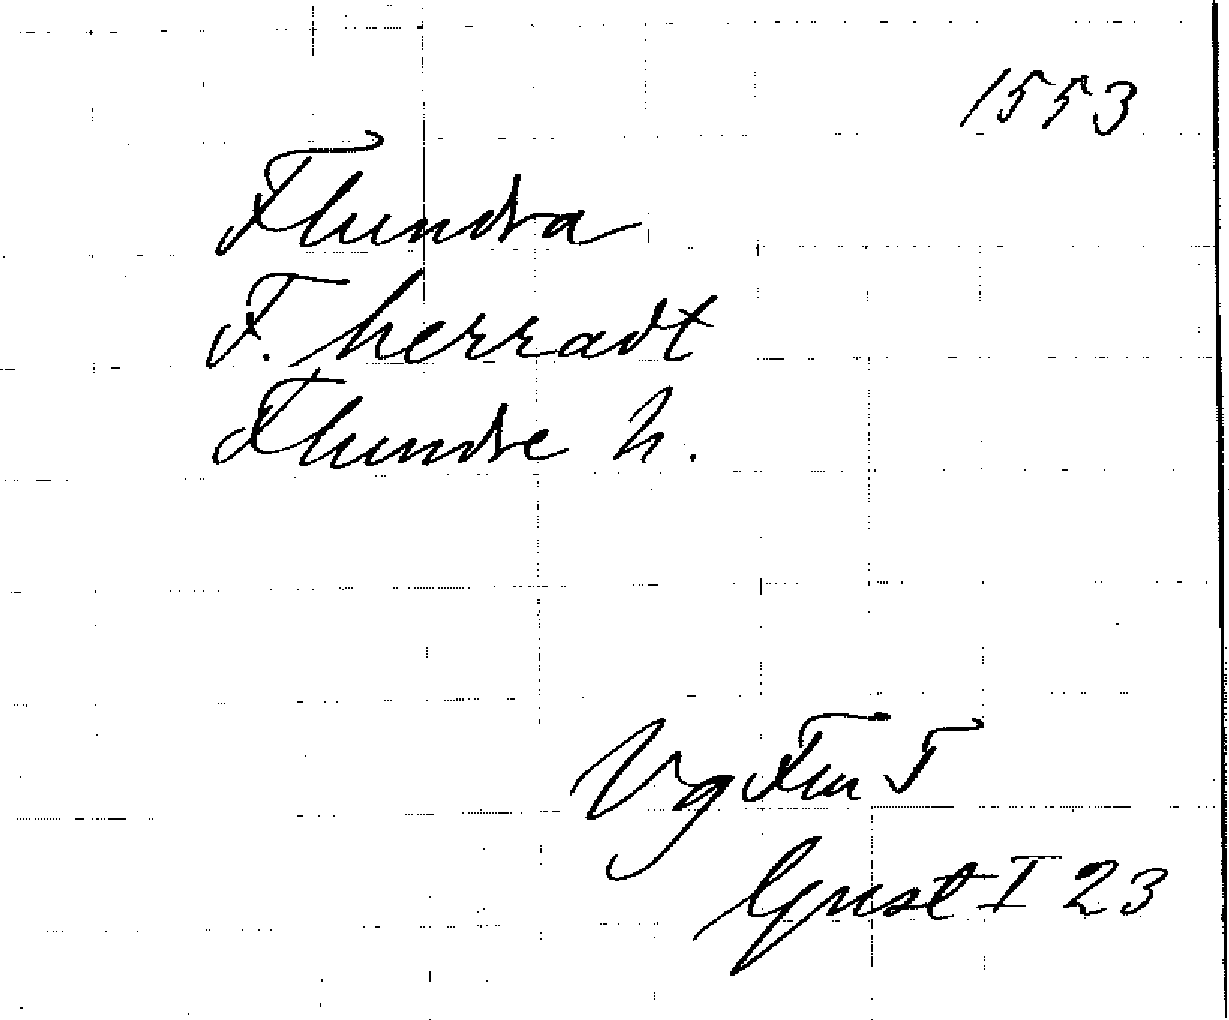 1553
Flundra
F. herradt
Flundre h.
Vg
Gust I 23